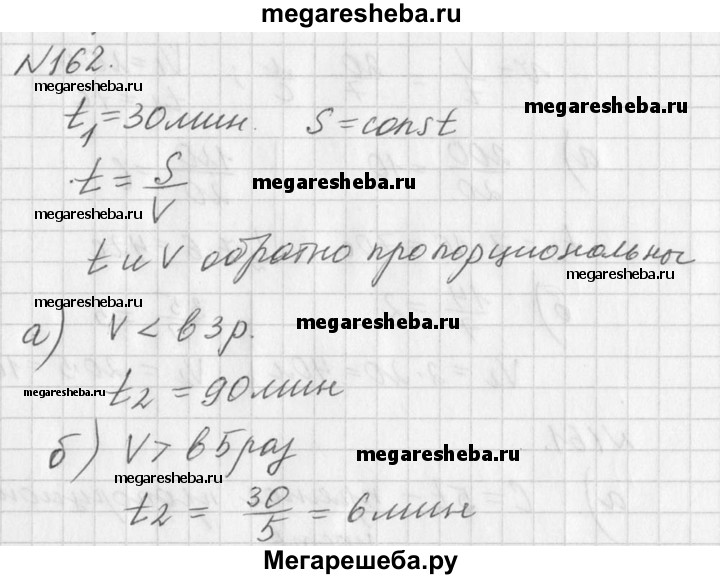 megaresheba.ru
N162.
megaresheba.ru megaresheba.ru
t₁ = 30 мин. S = const
t = S/V
megaresheba.ru
megaresheba.ru
t и V обратно пропорциональны
megaresheba.ru
megaresheba.ru
а) V < в 3 р.
megaresheba.ru
megaresheba.ru
t₂ = 90 мин
б) V > в 5 раз
megaresheba.ru
megaresheba.ru
t₂ = 30/5 = 6 мин
Мегарешеба.ру